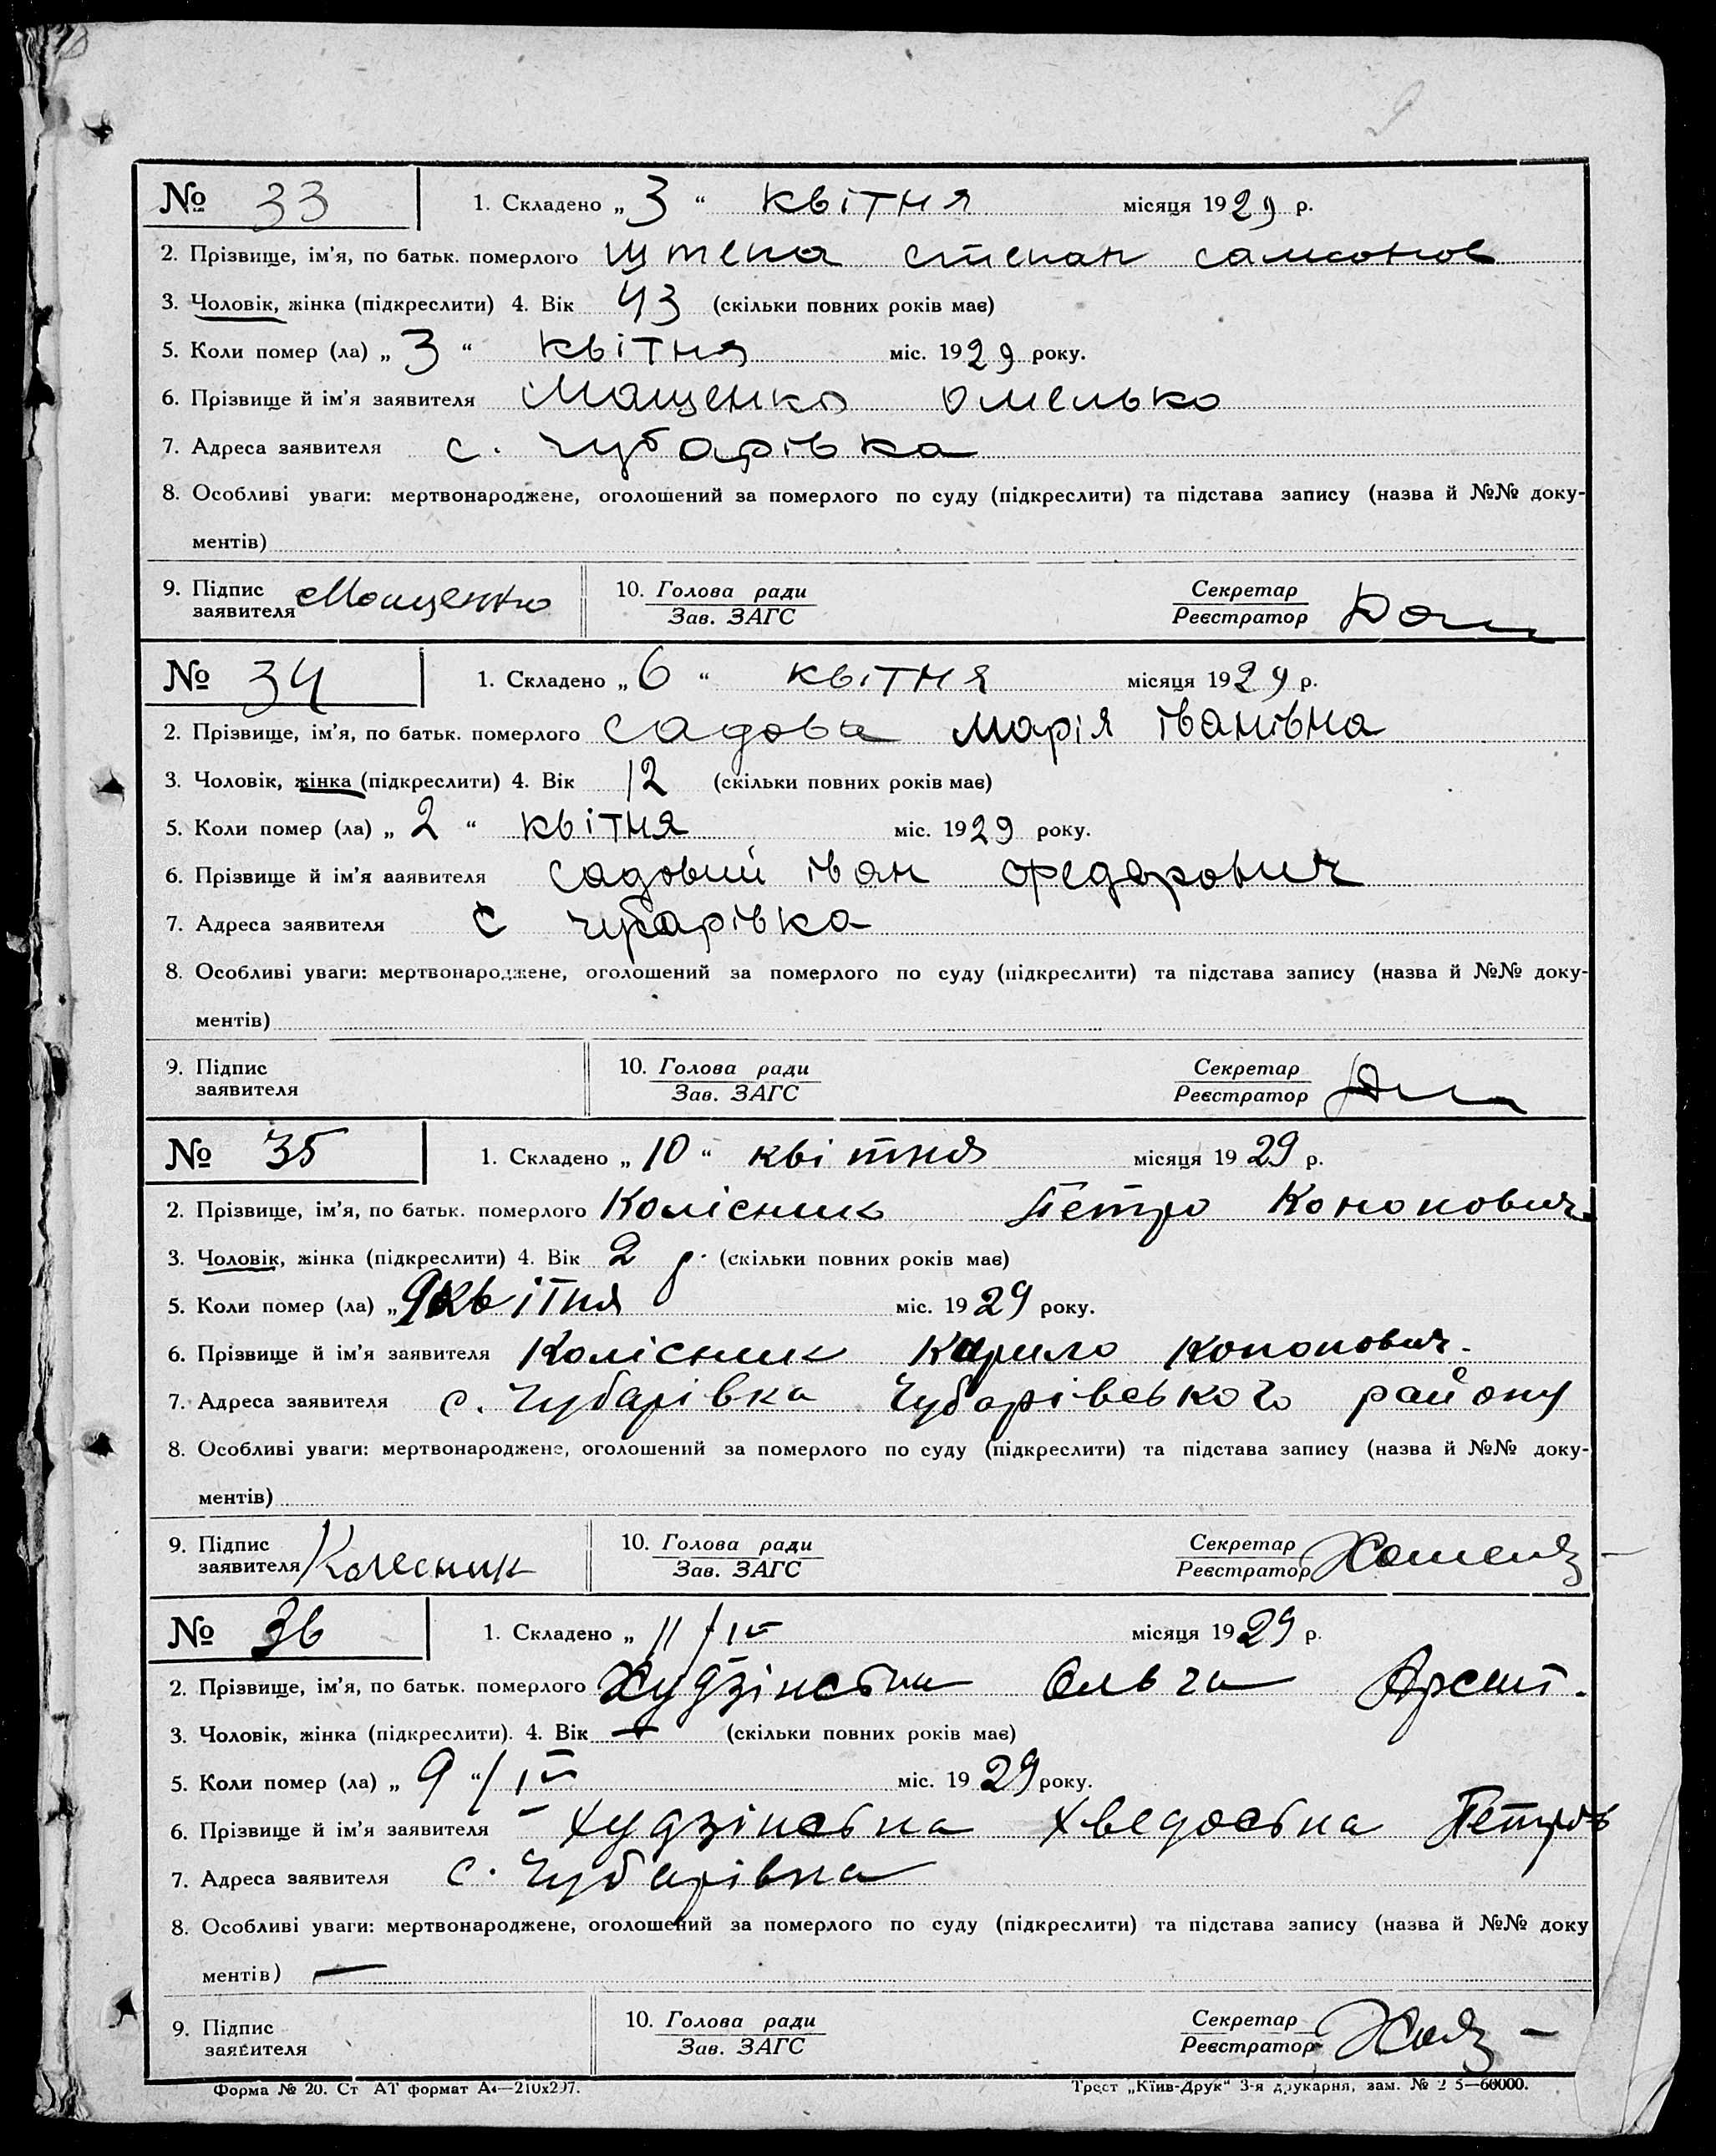 9
№ 33 1. Складено „3“ квітня місяця 1929 р.
2. Прізвище, ім'я, по батьк. померлого Штепа Степан Самсонов
3. Чоловік, жінка (підкреслити) 4. Вік 43 (скільки повних років має)
5. Коли помер (ла) „3“ квітня міс. 1929 року.
6. Прізвище й ім'я заявителя Мащенко Омелько
7. Адреса заявителя с. Чубарівка
8. Особливі уваги: мертвонароджене, оголошений за померлого по суду (підкреслити) та підстава запису (назва й №№ доку-
ментів)
9. Підпис заявителя Мащенко 10. Голова ради Зав. ЗАГС Секретар Реєстратор
№ 34 1. Складено „6“ квітня місяця 1929 р.
2. Прізвище, ім'я, по батьк. померлого Садова Марія Іванівна
3. Чоловік, жінка (підкреслити) 4. Вік 12 (скільки повних років має)
5. Коли помер (ла) „2“ квітня міс. 1929 року.
6. Прізвище й ім'я ааявителя Садовий Іван Федорович
7. Адреса заявителя с Чубарівка
8. Особливі уваги: мертвонароджене, оголошений за померлого по суду (підкреслити) та підстава запису (назва й №№ доку-
ментів)
9. Підпис заявителя 10. Голова ради Зав. ЗАГС Секретар Реєстратор
№ 35 1. Складено „10“ квітня місяця 1929 р.
2. Прізвище, ім'я, по батьк. померлого Колісник Петро Кононович
3. Чоловік, жінка (підкреслити) 4. Вік 2 р. (скільки повних років має)
5. Коли помер (ла) „9 квітня міс. 1929 року.
6. Прізвище й ім'я заявителя Колісник Кирило Кононович.
7. Адреса заявителя с. Чубарівка Чубарівського району
8. Особливі уваги: мертвонароджене, оголошений за померлого по суду (підкреслити) та підстава запису (назва й №№ доку-
ментів)
9. Підпис заявителя Колесник 10. Голова ради Зав. ЗАГС Секретар Реєстратор
№ 36 1. Складено „11/IV місяця 1929 р.
2. Прізвище, ім'я, по батьк. померлого Худзінська Ольга Арсент.
3. Чоловік, жінка (підкреслити). 4. Вік — (скільки повних років має)
5. Коли помер (ла) „9“/IV міс. 1929 року.
6. Прізвище й ім'я заявителя Худзінська Хведоська Петров
7. Адреса заявителя с. Чубарівка
8. Особливі уваги: мертвонароджене, оголошений за померлого по суду (підкреслити) та підстава запису (назва й №№ доку
ментів) —
9. Підпис заявителя 10. Голова ради Зав. ЗАГС Секретар Реєстратор
Форма № 20. Ст АТ формат А4—210х297. Трест „Київ-Друк“ 3-я друкарня, зам. № 2 5—60000.